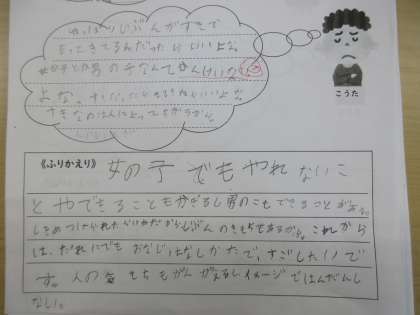 やっぱりじぶんがすきで
もってきてるんだったらいいよな。
女の子とか男の子なんてかんけいない
よな。
すきなのは人によってちがうから。
こうた
《ふりかえり》女の子でもやれないこ
とやできることもかぎるし男のこもできることがある。
しをめつけられたらいやだからじぶんのきもちをあるから。これから
は、だれにでもおなじはなしかたで、すごしたいで
す。人の気もちもかんがえるしイメージではんだんし
ない。